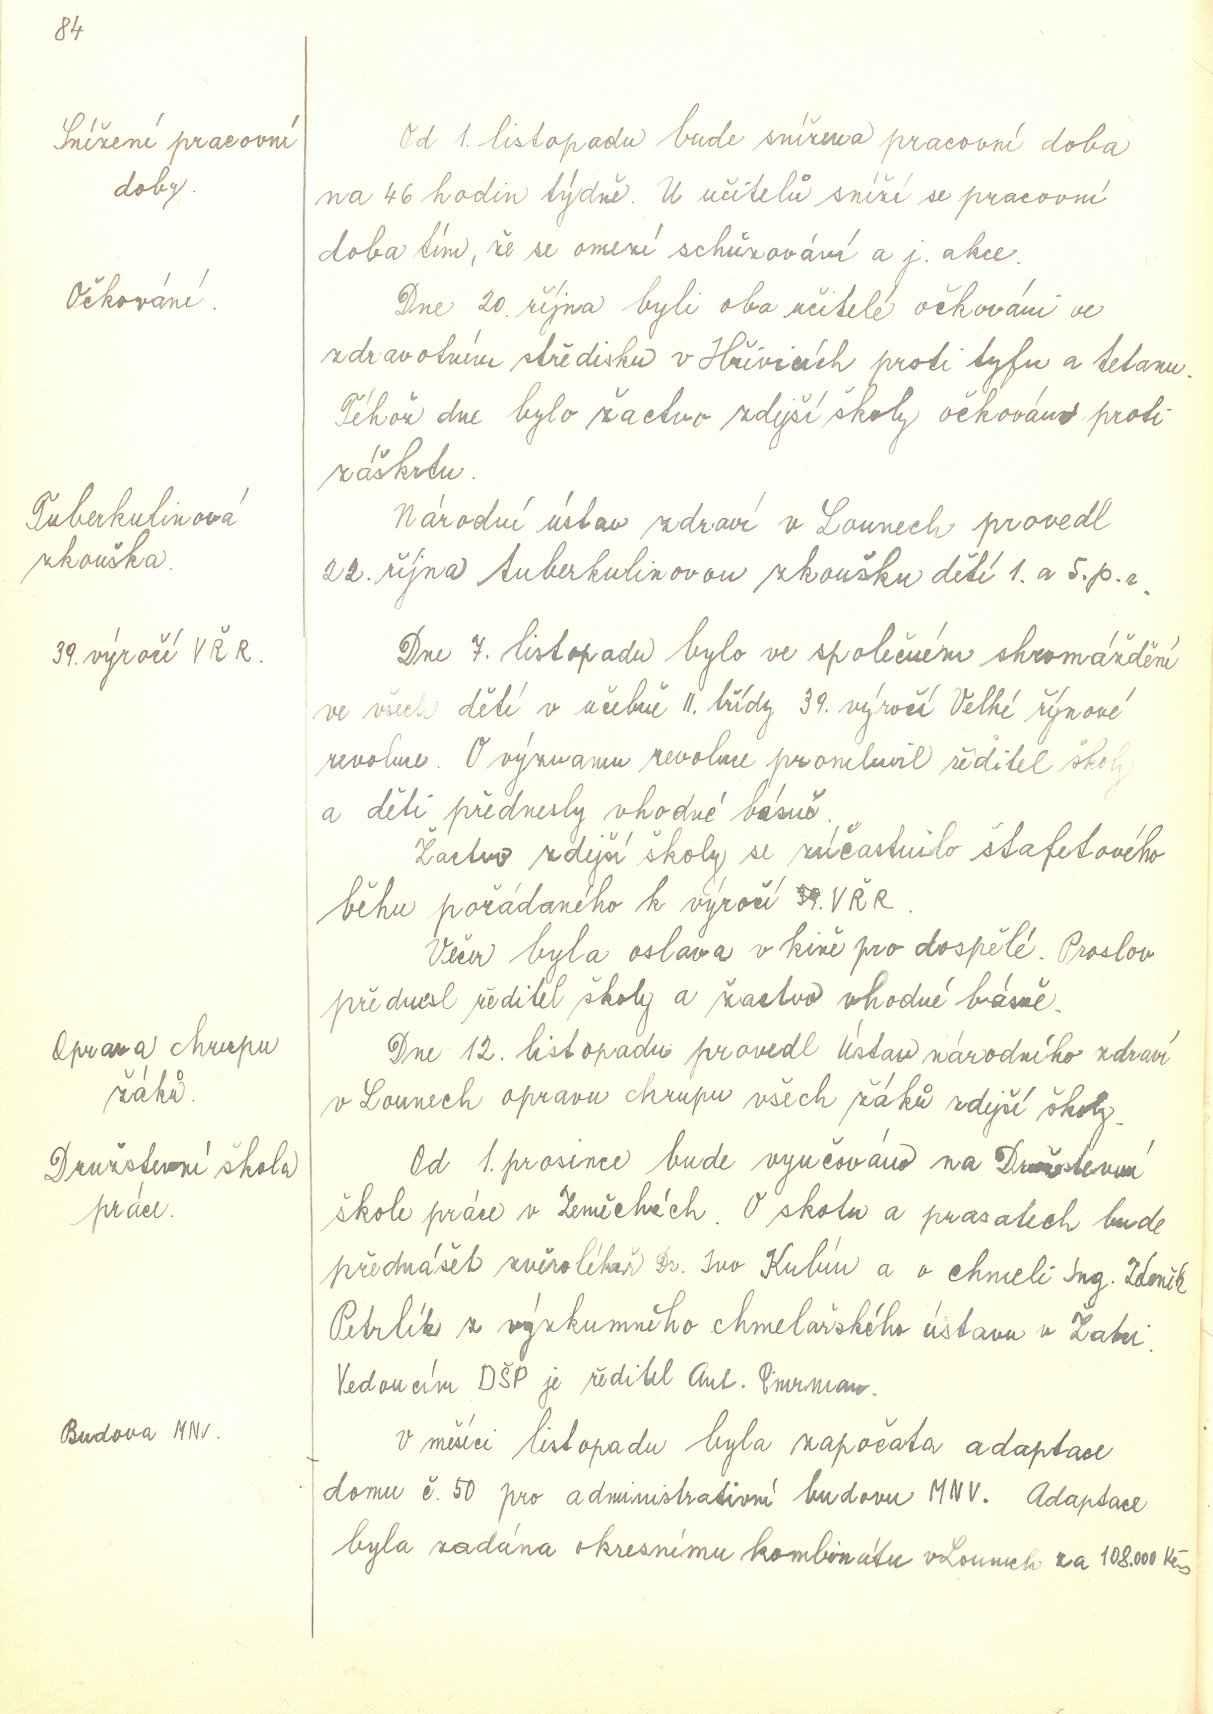 84
Snížení pracovní
doby.
Od 1. listopadu bude snížena pracovní doba
na 46 hodin týdně. U učitelů sníží se pracovní
doba tím, že se omezí schůzování a j. akce.
Očkování.
Dne 20. října byli oba učitelé očkováni ve
zdravotním středisku v Hřivicích proti tyfu a tetanu.
Téhož dne bylo žactvo zdejší školy očkováno proti
záškrtu.
Tuberkulinová
zkouška.
Národní ústav zdraví v Lounech provedl
22. října tuberkulinovou zkoušku dětí 1. a 5. p. r.
39. výročí VŘR.
Dne 7. listopadu bylo ve společném shromáždění
ve všech dětí v učebně II. třídy 39. výročí Velké říjnové
revoluce. O významu revoluce promluvil ředitel školy
a děti přednesly vhodné básně.
Žactvo zdejší školy se zúčastnilo štafetového
běhu pořádaného k výročí 39. VŘR.
Večer byla oslava v kině pro dospělé. Proslov
přednesl ředitel školy a žactvo vhodné básně.
Oprava chrupu
žáků.
Dne 12. listopadu provedl Ústav národního zdraví
v Lounech opravu chrupu všech žáků zdejší školy.
Družstevní škola
práce.
Od 1. prosince bude vyučováno na Družstevní
škole práce v Zeměchách. O skotu a prasatech bude
přednášet zvěrolékař Dr. Ivo Kulín a o chmeli Ing. Zdeněk
Petrlík z výzkumného chmelařského ústavu v Žatci.
Vedoucím DŠP je ředitel Ant. Pimrman.
Budova MNV.
V měsíci listopadu byla započata adaptace
domu č. 50 pro administrativní budovu MNV. Adaptace
byla zadána okresnímu kombinátu v Lounech za 108.000 Kčs